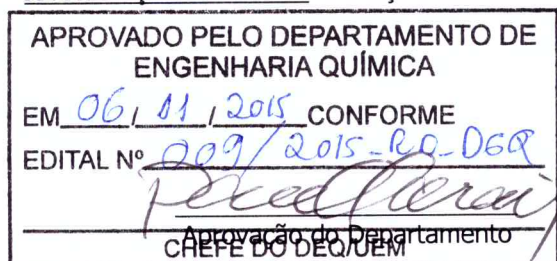 APROVADO PELO DEPARTAMENTO DE
ENGENHARIA QUÍMICA
EM 06 / 11 / 2015 CONFORME
EDITAL Nº 009/2015-RO-DEQ
Aprovação do Departamento
CHEFE DO DEQ/UEM